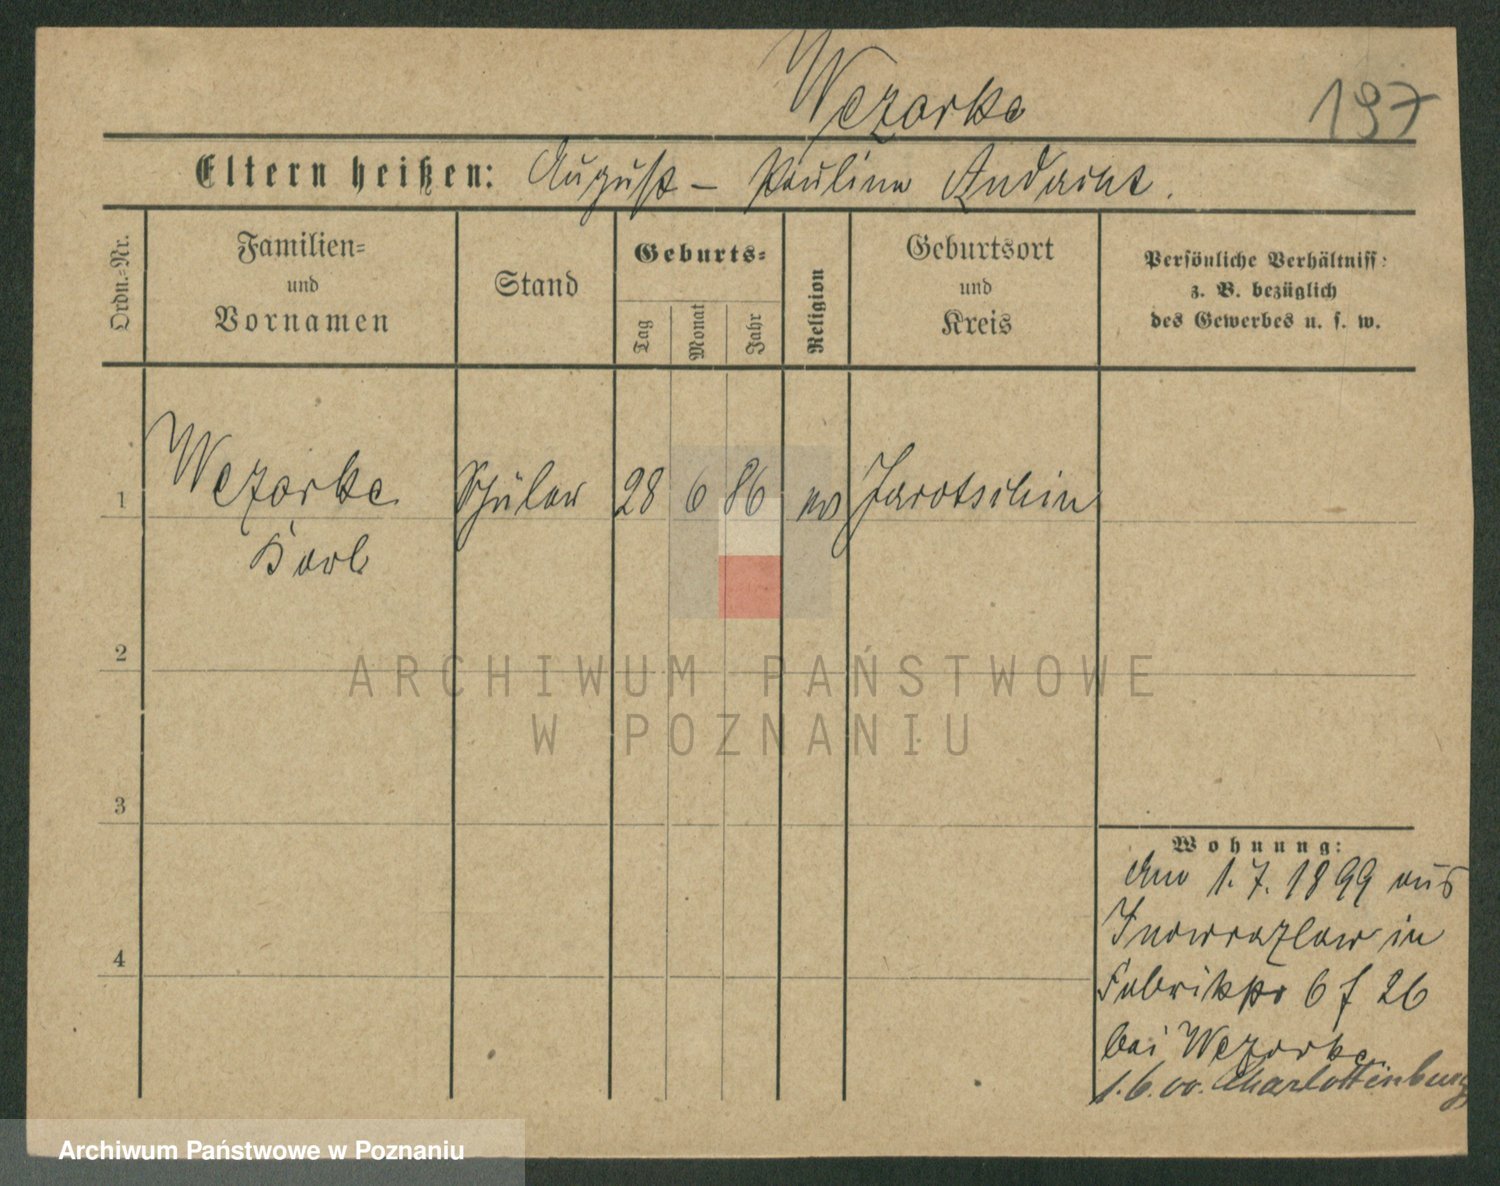 Wezorke
197
Eltern heißen: August – Pauline Andacht.
Ordn.-Nr.
Familien-
und
Vornamen
Stand
Geburts-
Tag
Monat
Jahr
Religion
Geburtsort
und
Kreis
Persönliche Verhältniss:
z. B. bezüglich
des Gewerbes u. s. w.
1 Wezorke Schüler 28 6 86 ev Jarotschin
Karl
2
3
4
Wohnung:
am 1.7.1899 aus
Inowrazlaw in
6 f 26
bei Wezorke
1.6.00. Charlottenburg
ARCHIWUM PAŃSTWOWE
W POZNANIU
Archiwum Państwowe w Poznaniu